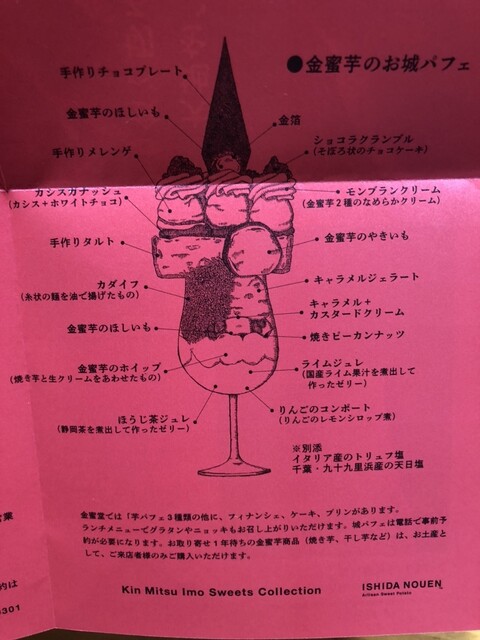 ●金蜜芋のお城パフェ
手作りチョコプレート
金蜜芋のほしいも
金箔
手作りメレンゲ
ショコラクランブル
(そぼろ状のチョコケーキ)
カシスガナッシュ
(カシス+ホワイトチョコ)
モンブランクリーム
(金蜜芋2種のなめらかクリーム)
手作りタルト
金蜜芋のやきいも
カダイフ
(糸状の麺を油で揚げたもの)
キャラメルジェラート
キャラメル+
カスタードクリーム
金蜜芋のほしいも
焼きピーカンナッツ
金蜜芋のホイップ
(焼き芋と生クリームをあわせたもの)
ライムジュレ
(国産ライム果汁を煮出して
作ったゼリー)
ほうじ茶ジュレ
(静岡茶を煮出して作ったゼリー)
りんごのコンポート
(りんごのレモンシロップ煮)
※別添
イタリア産のトリュフ塩
千葉・九十九里浜産の天日塩
金蜜堂では「芋パフェ3種類の他に、フィナンシェ、ケーキ、プリンがあります。
ランチメニューでグラタンやニョッキもお召し上がりいただけます。城パフェは電話で事前予
約が必要になります。お取り寄せ1年待ちの金蜜芋商品(焼き芋、干し芋など)は、お土産と
して、ご来店者様のみご購入いただけます。
営業
約は
301
Kin Mitsu Imo Sweets Collection
ISHIDA NOUEN
Artisan Sweet Potato